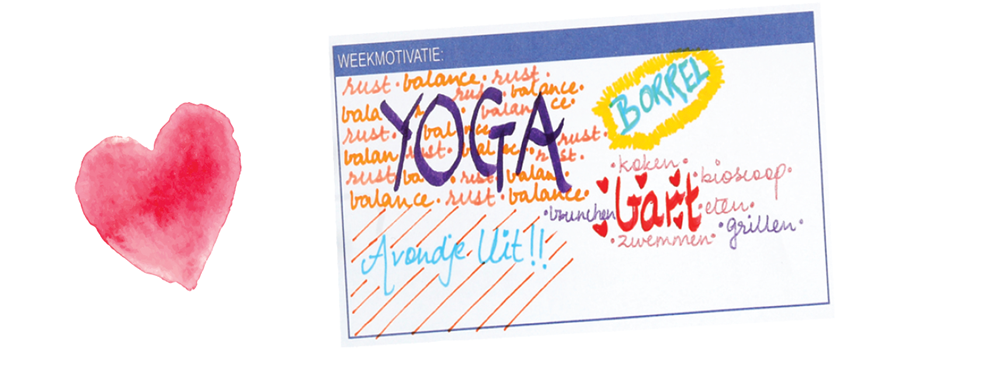 WEEKMOTIVATIE:
rust · balance · rust ·
rust · balance ·
bala balance ·
rust · balance rust ·
balan rust · balance · rust ·
rust · ba rust · balan
balance · rust · balance ·
YOGA
BORREL
· koken ·
· bioscoop ·
· brunchen Bart · eten ·
· zwemmen · · grillen ·
Avondje Uit!!